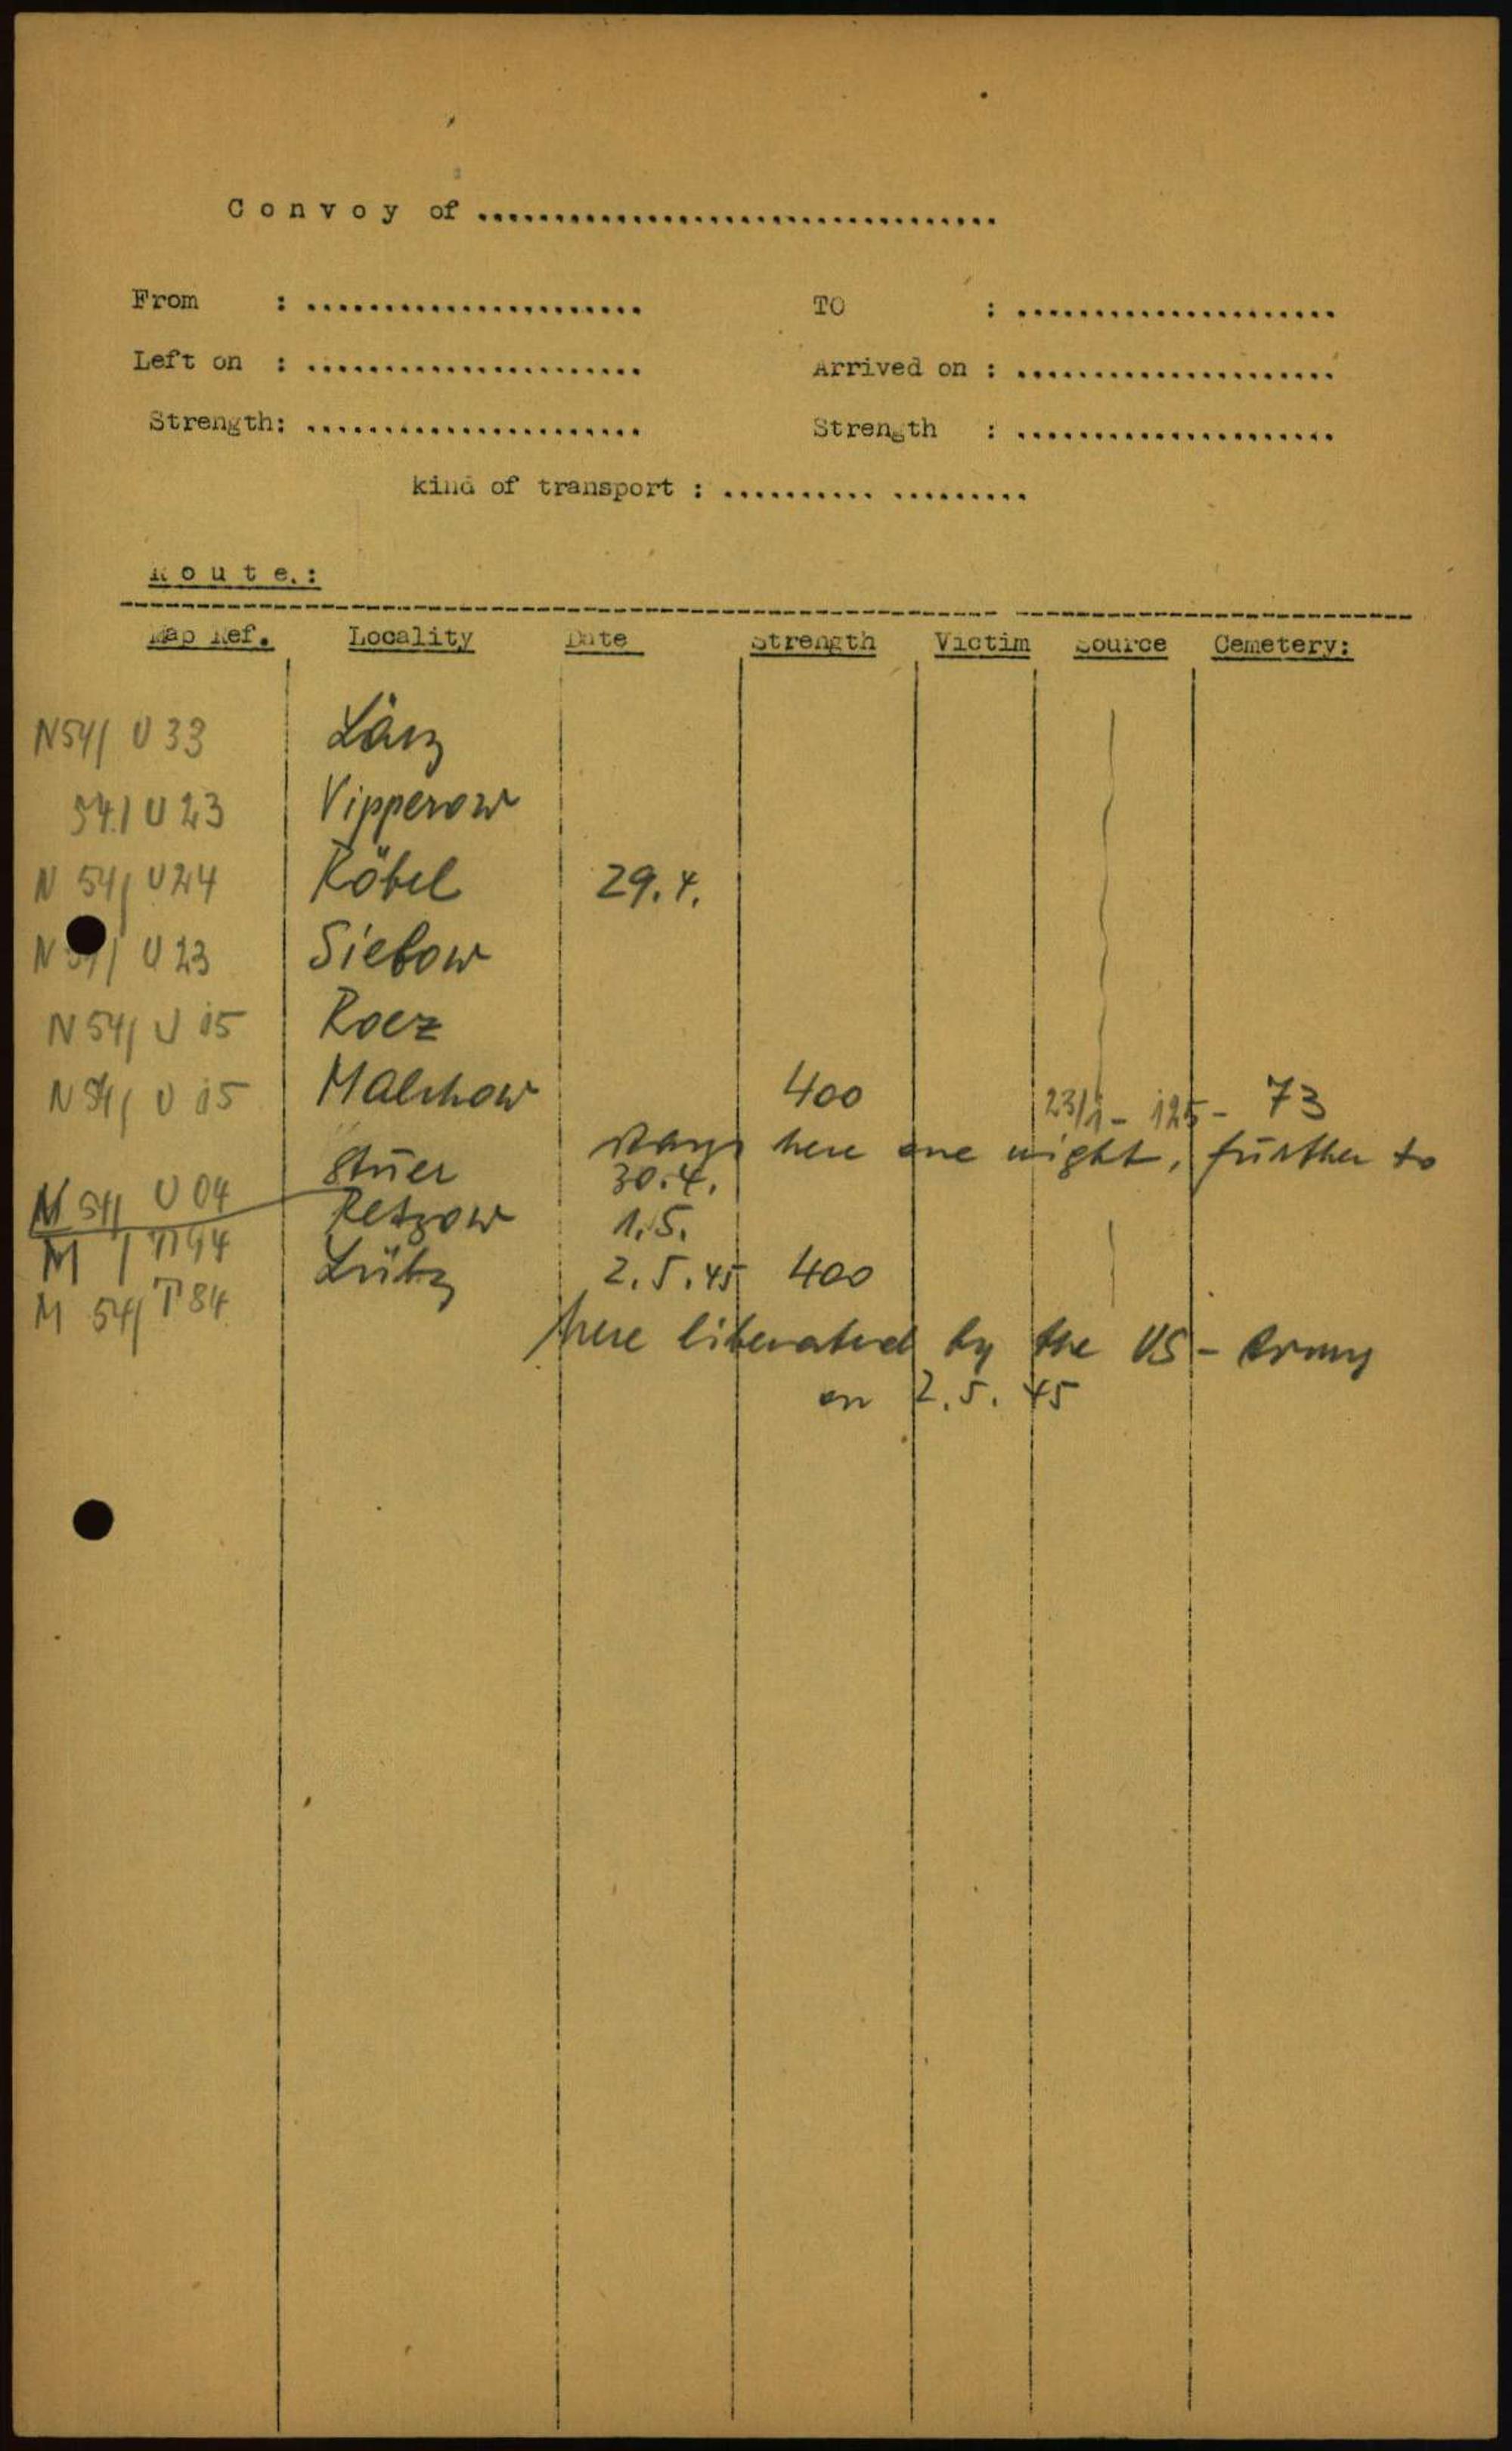 Convoy of ..................................
From : ...................... TO : .....................
Left on : ...................... Arrived on : .....................
Strength: ...................... Strength : .....................
kind of transport : .......... .........
Route.:
Map Ref. Locality Date Strength Victim Source Cemetery:
N54/ U 33 Lärz
54/ U 23 Vipperow
N 54/ U24 Röbel 29.4.
N 54/ U 23 Sietow
N 54/ U 15 Roez
N 54/ U 15 Malchow 400 23/1 - 125 - 73
stays here one night, further to
M 54/ U 04 Stuer 30.4.
M / T94 Retzow 1.5.
M 54/ T84 Lübz 2.5.45 400
here liberated by the US - Army
on 2.5.45